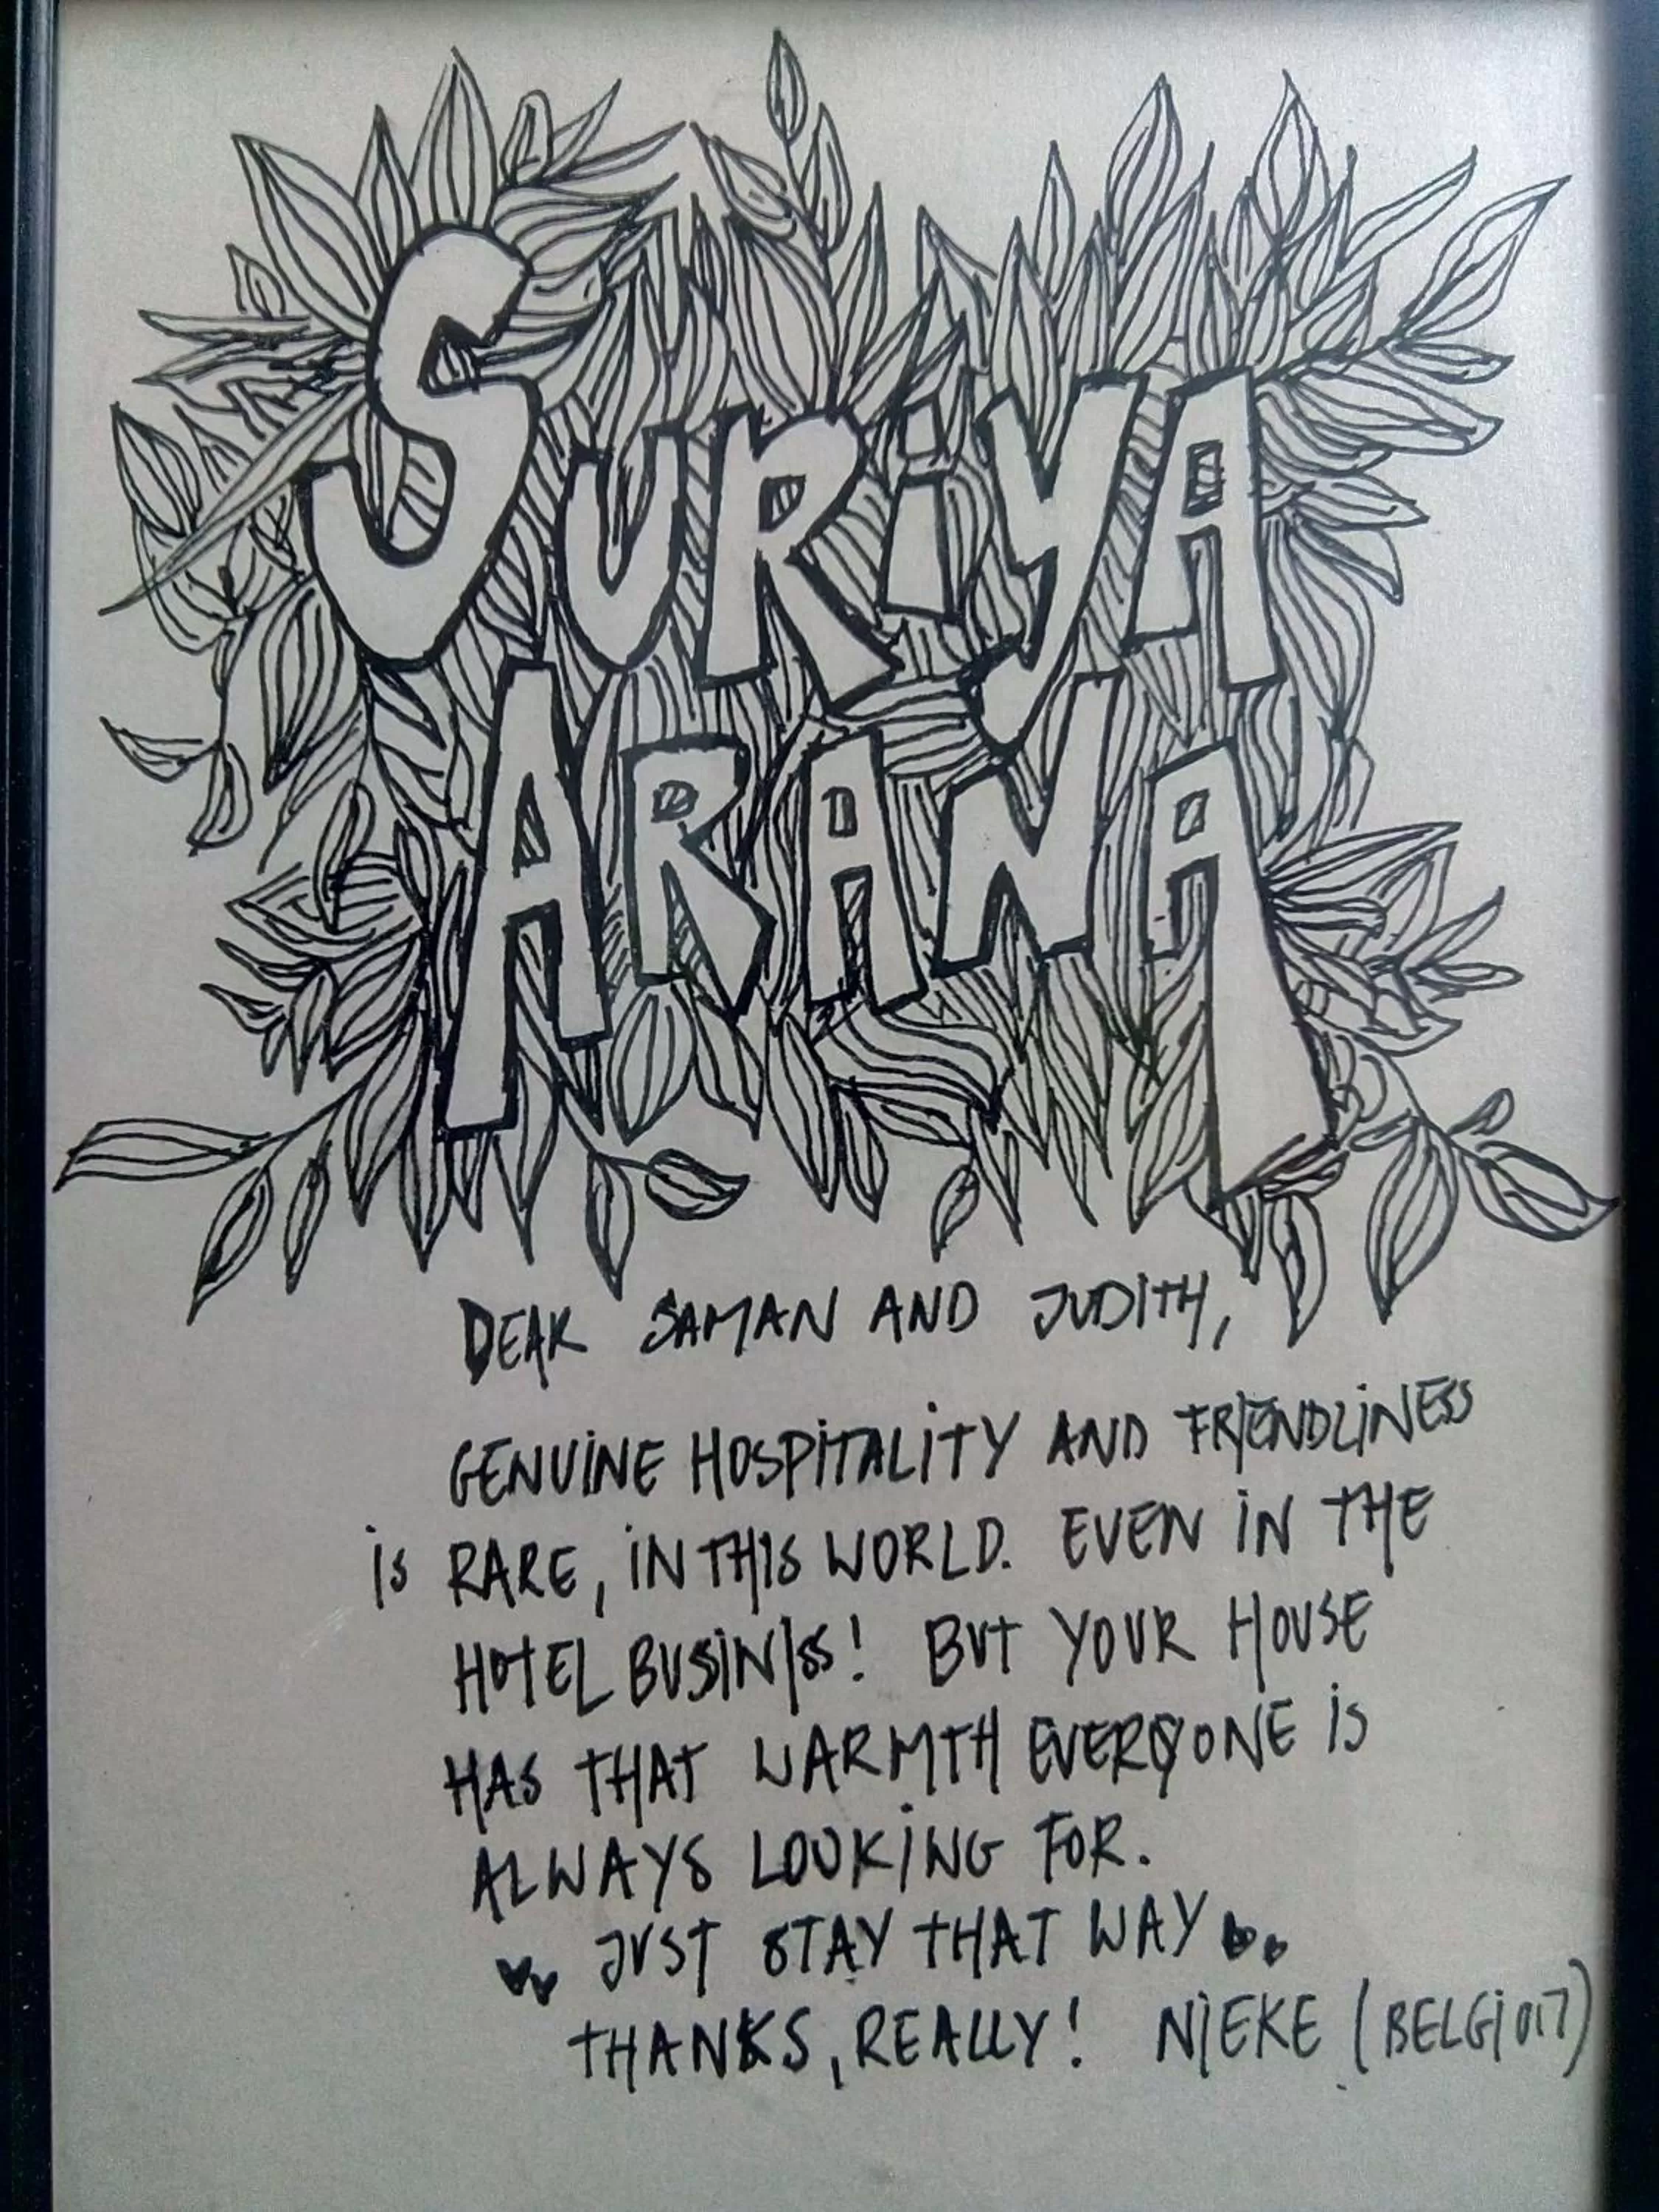 SURiYA
ARANA
DEAR SAMAN AND JUDITH,
GENUiNE HOSPiTALiTY AND FRIENDLiNESS
is RARE, iN THIS WORLD. EVEN iN THE
HOTEL BUSiNISS! BUT YOUR HOUSE
HAS THAT WARMTH EVERYONE is
ALWAYS LOOKiNG FOR.
JUST STAY THAT WAY
THANKS, REALLY! NIEKE (BELGIUM)